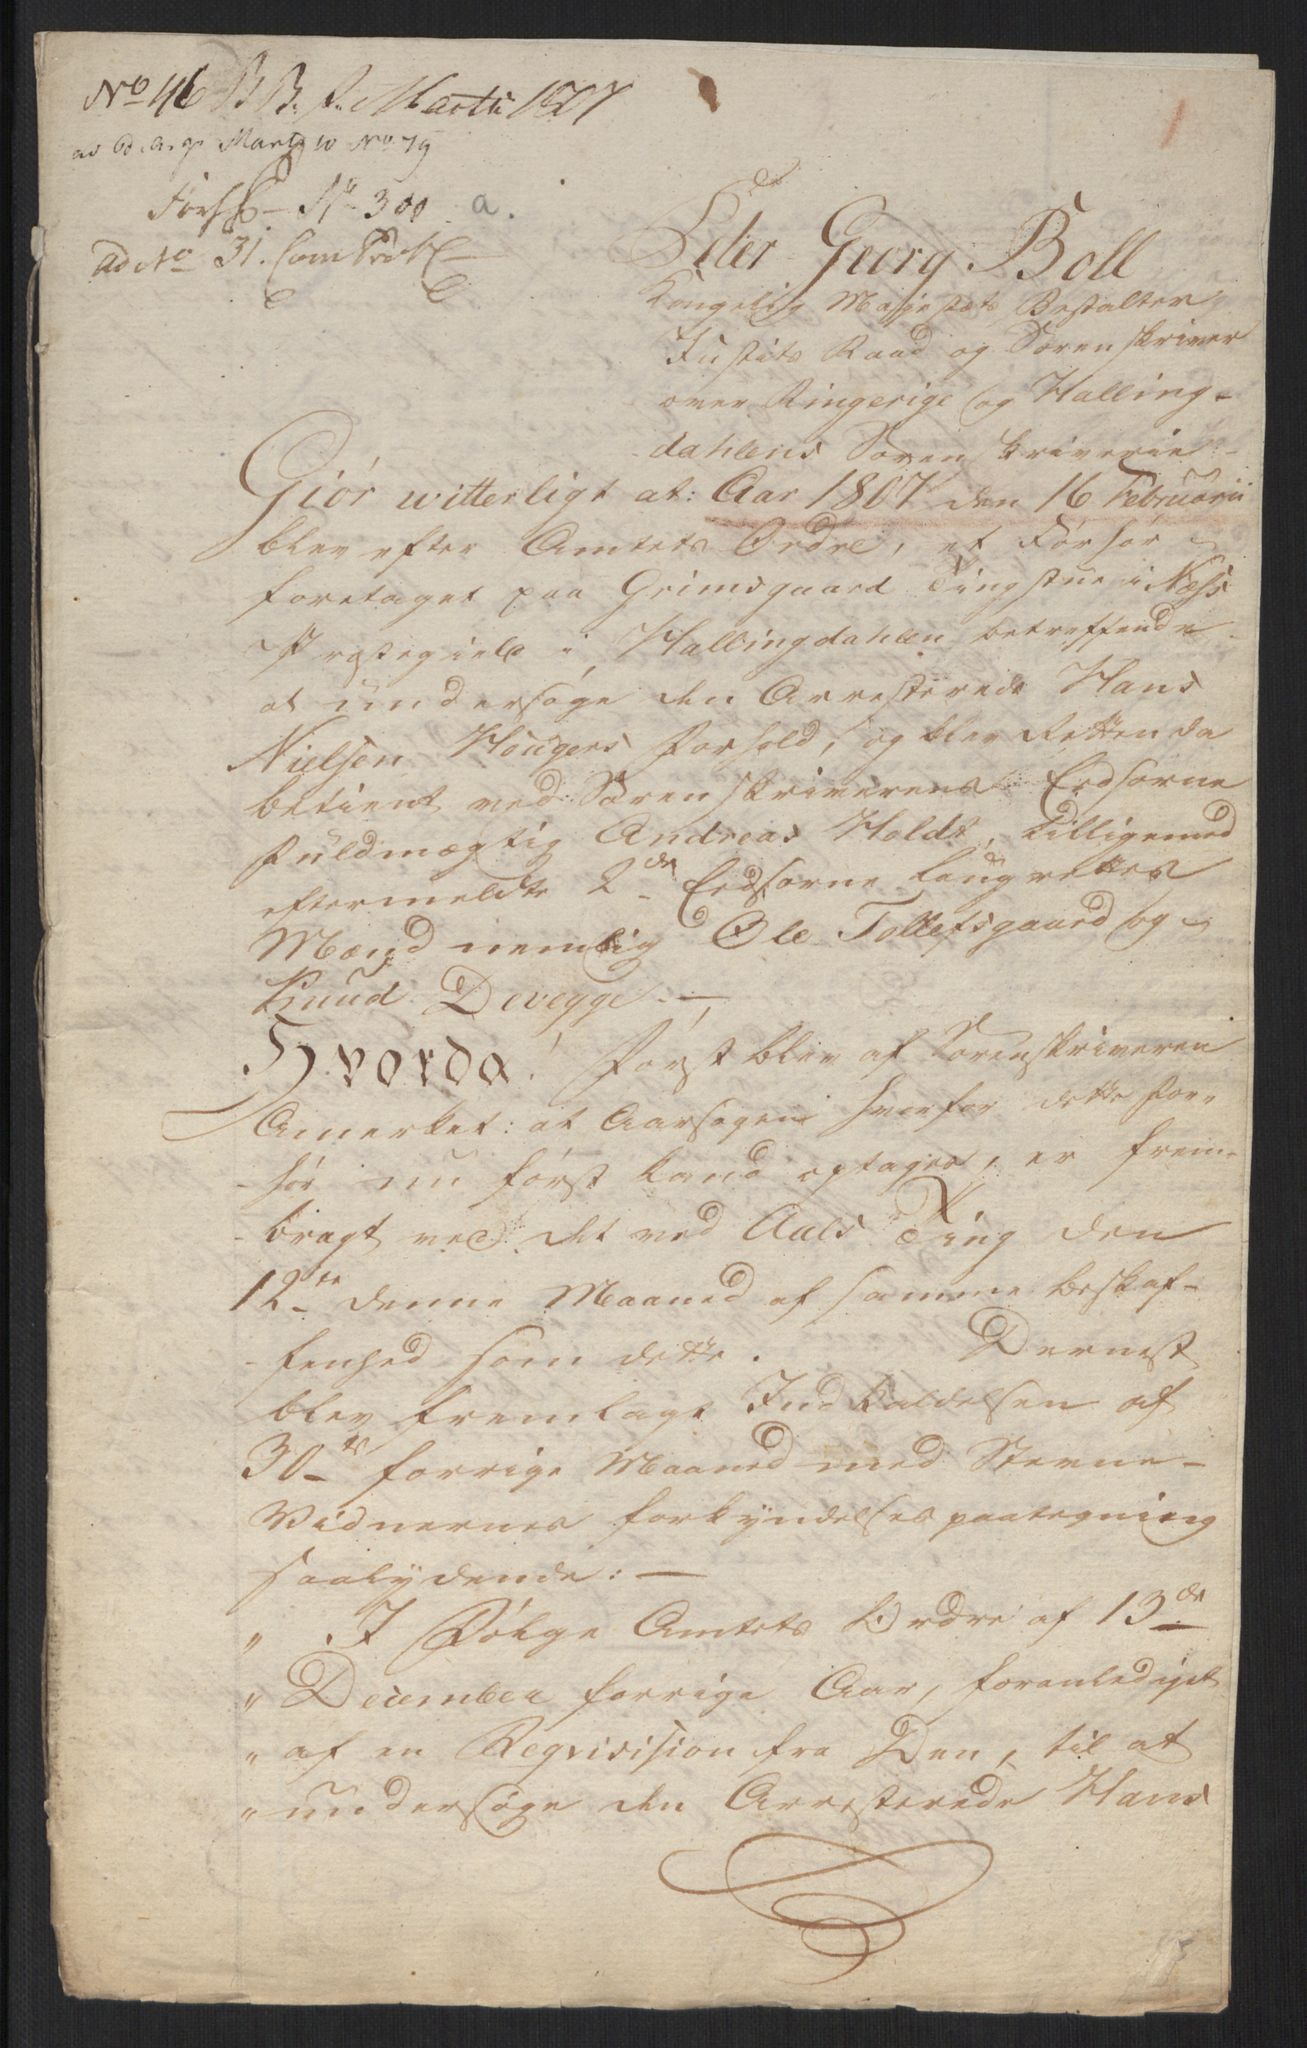 No 46 B B. f. Martii 1807
No 79
Forh No 300 a.
ad No 31. Com Prot
Peter Georg Boll
Kongelig Majestæts Bestalter
Justits Raad og Sorenskriver
over Ringerige og Halling-
dahlens Sorenskriverie
Giør witterligt at: Aar 1807 den 16 Februarii
blev efter Amtets Ordre, et Forhør
foretaget paa Grimsgaard Tingstue i Næss
Præstegield i Hallingdahlen betreffende
at undersøge den Arresterede Hans
Nielsen Houges Forhold, og blev Retten da
betient ved Sorenskriverens Eedsorne
Fuldmægtig Andreas Holdt, tilligemed
eftermeldte 2de Eedsorne Laugrettes
Mænd nemlig Ole Tollefsgaard og
Knud Devegge.—
Hvorda! først blev af Sorenskriveren
Anmerket: at Aarsagen hvorfor dette For-
-hør nu først kand optages, er frem-
-bragt ved det ved Aals Ting den
12te denne Maaned af samme beskaf-
-fenhed som dette. Dernest
blev fremlagt Indkaldelsen af
30te forrige Maaned med Stevne-
Vidnernes forkyndelses paategning
saalydende: —
" I Følge Amtets Ordre af 13de
" December forrige Aar, foranlediget
" af en Reqvisision fra Den, til at
" undersøge den Arresterede Hans